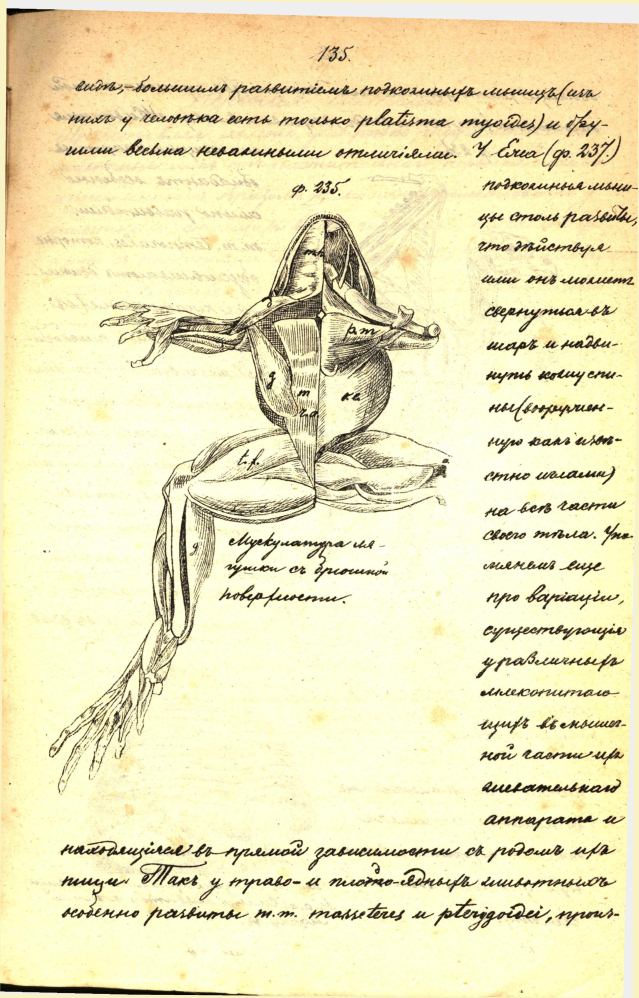 135.
видѣ,–большимъ развитіемъ подкожныхъ мышцъ (изъ
нихъ у человѣка есть только platisma myoides) и дру-
гими весьма неважными отличіями. У Ежа (ф. 237.)
ф. 235.
подкожныя мыш-
цы столь развиты,
что дѣйствуя
ими онъ можетъ
свернуться въ
шаръ и надви-
нуть кожу спи-
ны (вооружен-
ную какъ извѣ-
стно иглами)
на всѣ части
своего тѣла. Упо-
мянемъ еще
про варіаціи,
существующія
у различныхъ
млекопитаю-
щихъ въ мышеч-
ной части ихъ
жевательнаго
аппарата и
m.h.
d
p.m
g
m
r.a
к.с.
t.f.
g
Мускулатура ля-
гушки съ брюшной
поверхности.
находящіяся въ прямой зависимости съ родомъ ихъ
пищи. Такъ у траво- и плодо-ядныхъ животныхъ
особенно развиты m.m. masseteres и pterygoidei, произ-